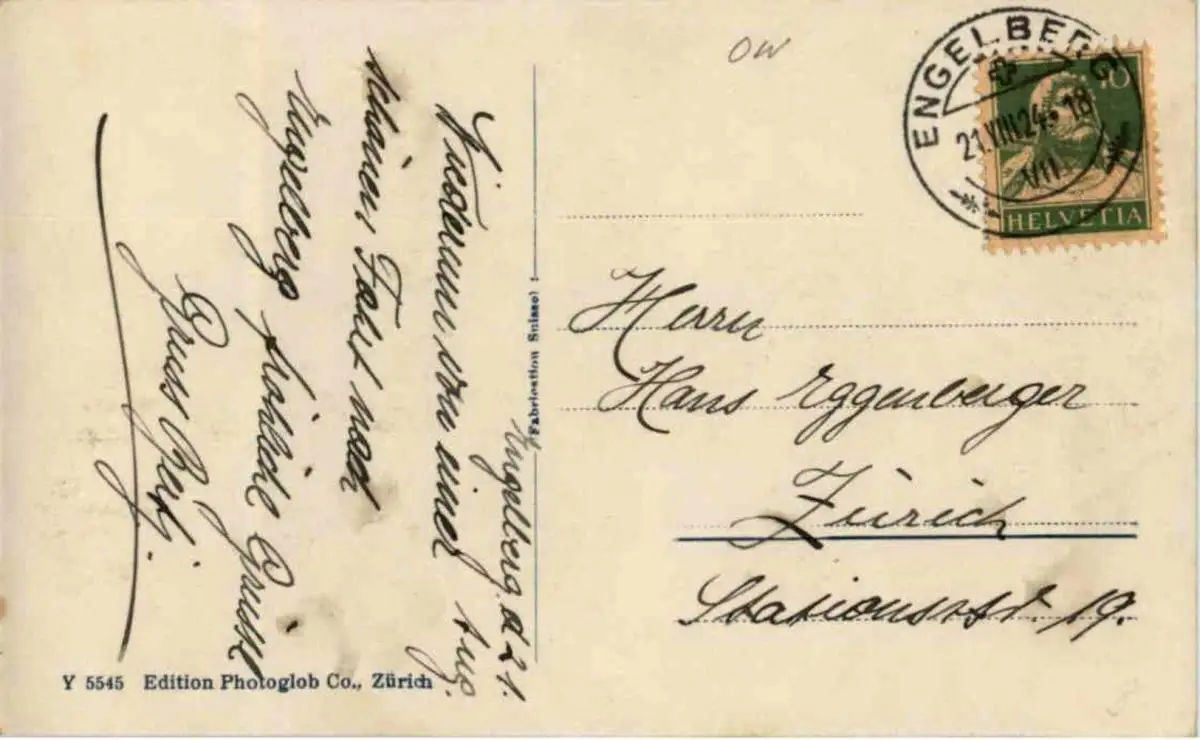 Engelberg d 21. Aug.
Wiederum von einer
schönen Fahrt nach
Engelberg herzliche Grüsse
Gruss
Fabrication Suisse
Y 5545 Edition Photoglob Co., Zürich
OW
ENGELBERG
21.VIII.24. 18
VII
10
HELVETIA
Herrn
Hans Eggenberger
Zürich
Stationsstr. 19.